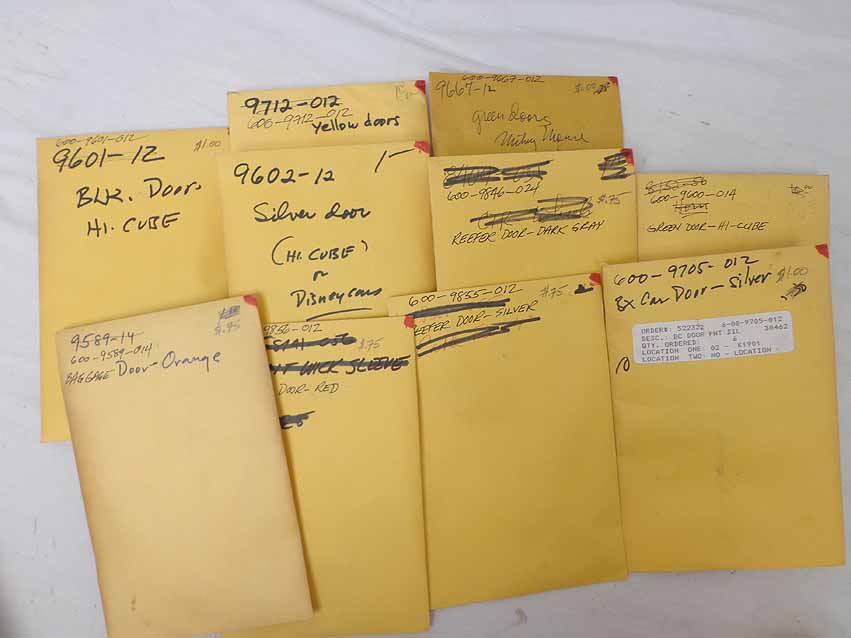 600-9601-012
9601-12
$1.00
BLK. Door-
HI. CUBE
9712-012
600-9712-012
Yellow doors
600-9667-012
9667-12
$1.00
green doors
Mickey Mouse
9602-12
Silver door
(HI. CUBE)
or
Disney cars
600-9846-024
$.75
REEFER DOOR-DARK GRAY
600-9600-014
GREEN DOOR-HI-CUBE
9589-14
600-9589-014
$.95
BAGGAGE Door-Orange
9856-012
$.75
THICK SLEEVE
DOOR-RED
600-9855-012
$.75
EEFER DOOR-SILVER
600-9705-012
Bx Car Door-Silver
$1.00
ORDER#: 522322 6-00-9705-012
DESC.: DC DOOR PNT SIL 30462
QTY. ORDERED: 6
LOCATION ONE: 02 - K1901
LOCATION TWO: NO - LOCATION -